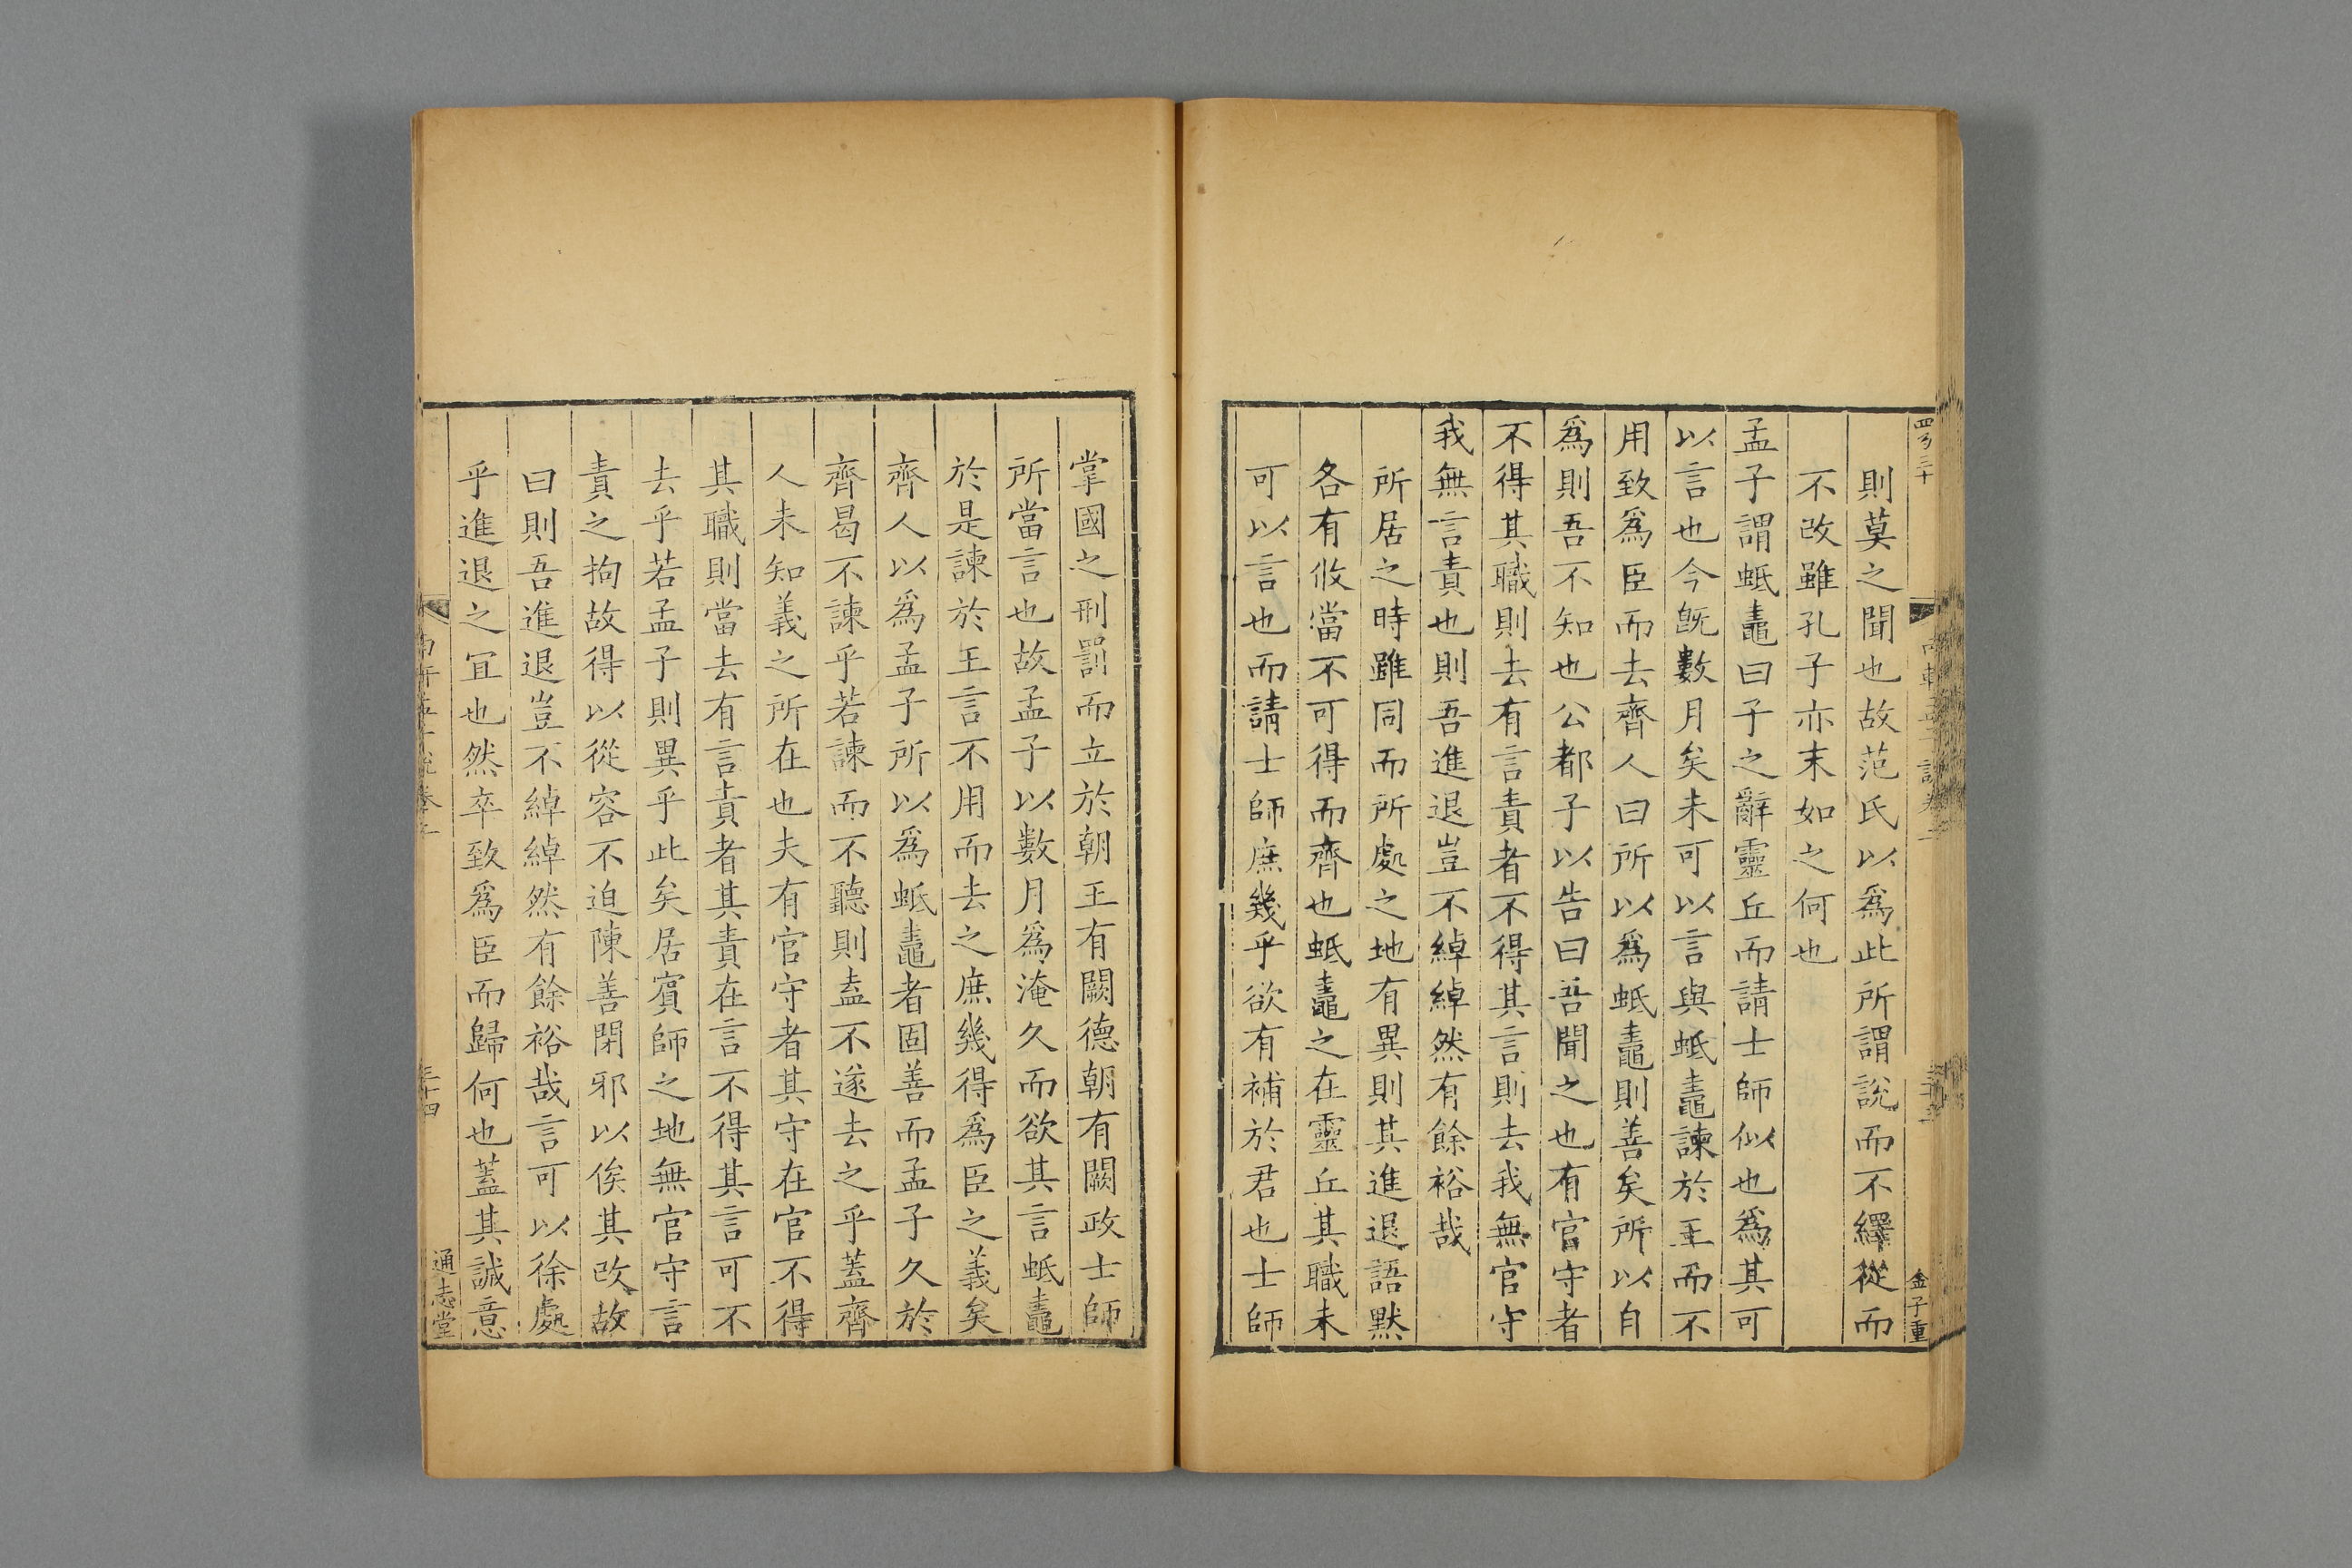 則莫之聞也故范氏以爲此所謂說而不繹從而
不改雖孔子亦末如之何也
孟子謂蚳鼃曰子之辭靈丘而請士師似也爲其可
以言也今旣數月矣未可以言與蚳鼃諫於王而不
用致爲臣而去齊人曰所以爲蚳鼃則善矣所以自
爲則吾不知也公都子以告曰吾聞之也有官守者
不得其職則去有言責者不得其言則去我無官守
我無言責也則吾進退豈不綽綽然有餘裕哉
所居之時雖同而所處之地有異則其進退語默
各有攸當不可得而齊也蚳鼃之在靈丘其職未
可以言也而請士師庶幾乎欲有補於君也士師
掌國之刑罰而立於朝王有闕德朝有闕政士師
所當言也故孟子以數月爲淹久而欲其言蚳鼃
於是諫於王言不用而去之庶幾得爲臣之義矣
齊人以爲孟子所以爲蚳鼃者固善而孟子久於
齊曷不諫乎若諫而不聽則盍不遂去之乎蓋齊
人未知義之所在也夫有官守者其守在官不得
其職則當去有言責者其責在言不得其言可不
去乎若孟子則異乎此矣居賓師之地無官守言
責之拘故得以從容不迫陳善閉邪以俟其改故
曰則吾進退豈不綽綽然有餘裕哉言可以徐處
乎進退之宜也然卒致爲臣而歸何也蓋其誠意
南軒孟子說卷二
三十四
通志堂
金子重